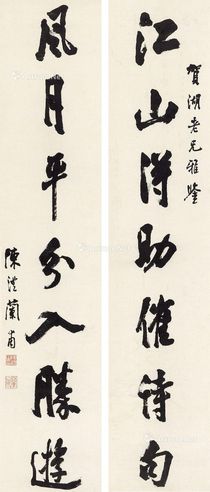 賀湖老兄雅鑒
江山得助催詩句
風月平分入勝遊
陳澧蘭甫